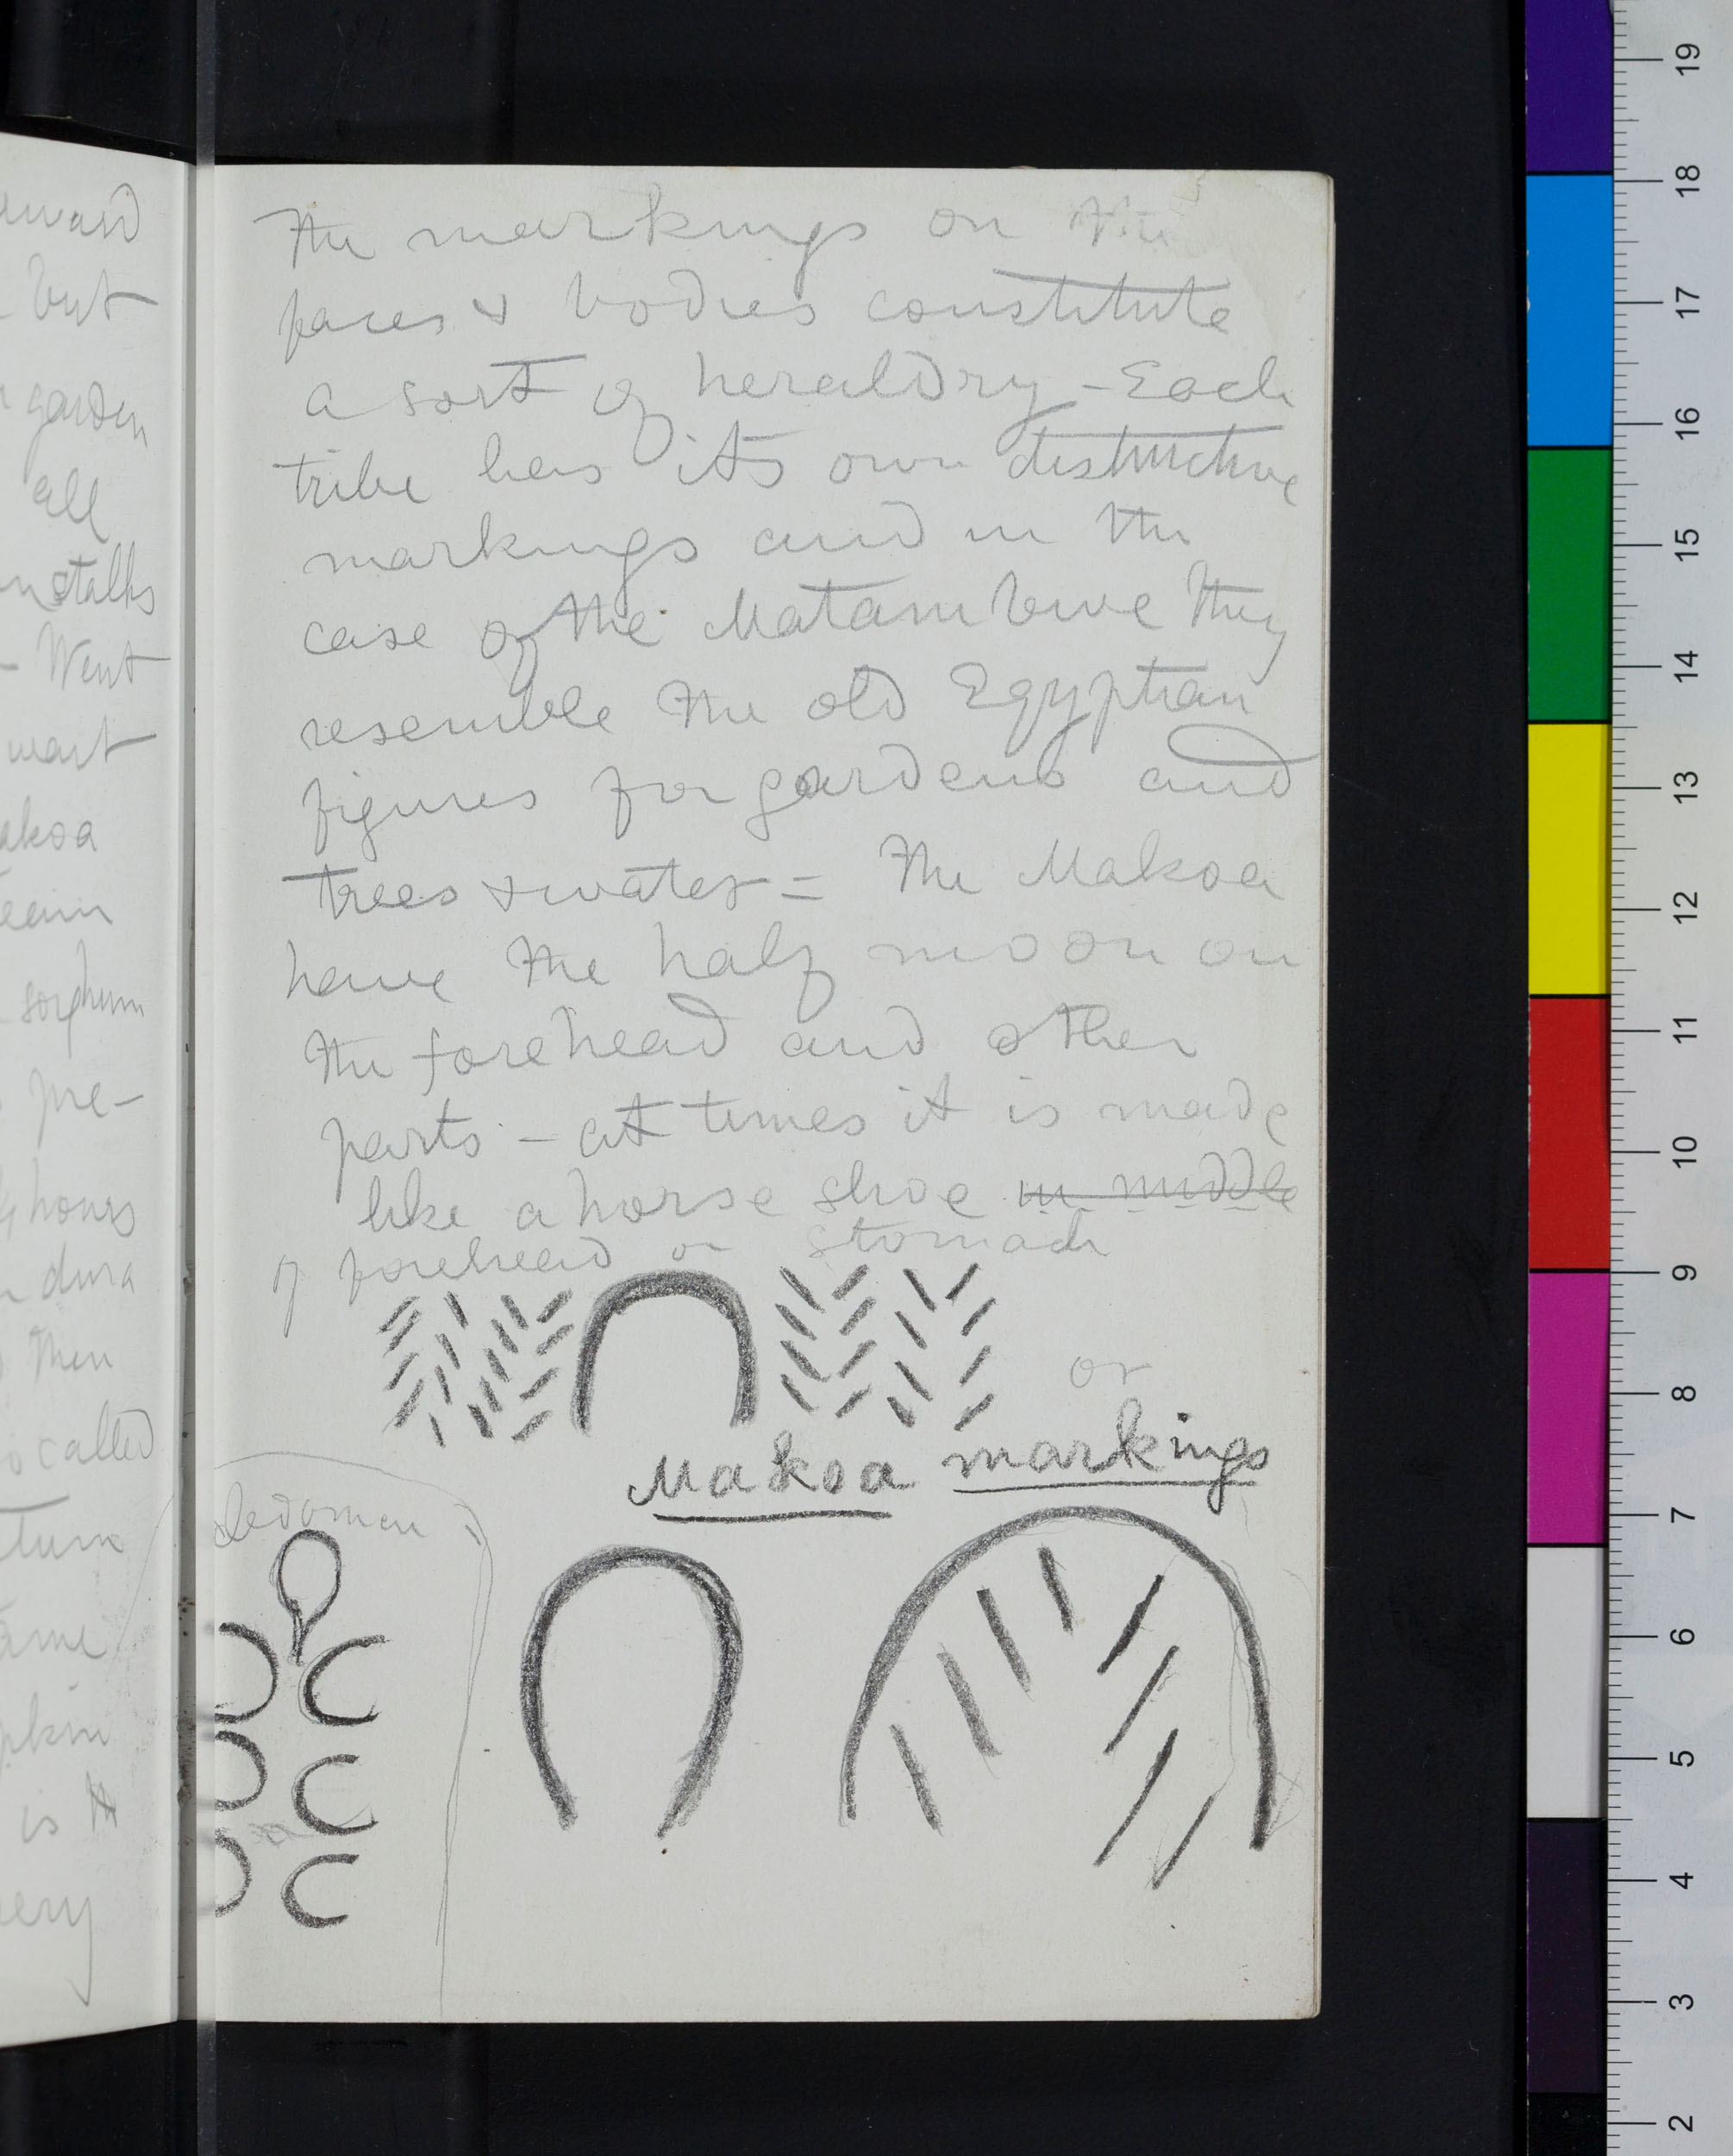 The markings on the
faces & bodies constitute
a sort of heraldry - Each
tribe has its own distinctive
markings and in the
case of the Matambwe they
resemble the old Egyptian
figures for gardens and
trees & water = The Makoa
have the half moon on
the forehead and other
parts - at times it is made
like a horse shoe in middle
of forehead or stomach
or
Makoa markings
abdomen
but
garden
all
stalks
- Went
akoa
sorghum
pre-
hours
dura
then
called
is
19
18
17
16
15
14
13
12
11
10
9
8
7
6
5
4
3
2